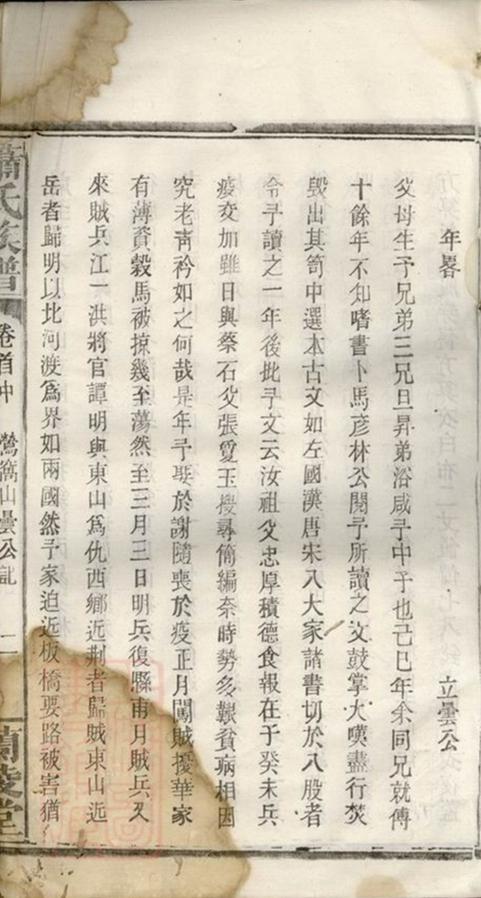 年畧 立曇公
父母生予兄弟三兄旦昇弟浴咸予中予也己巳年余同兄就傅
十餘年不知嗜書卜馬彥林公閱予所讀之文鼓掌大嘆盡行焚
毀出其笥中選本古文如左國漢唐宋八大家諸書切於八股者
令予讀之一年後批予文云汝祖父忠厚積德食報在于癸未兵
疫交加雖日與蔡石父張夏玉搜尋簡編奈時勢多艱貧病相因
究老靑衿如之何哉是年予娶於謝隨喪於疫正月闖賊擾華家
有薄貲榖馬被掠幾至蕩然至三月三日明兵復縣甫月賊兵又
來賊兵江一洪將官譚明與東山爲仇西鄉近荆者歸賊東山近
岳者歸明以北河渡爲界如兩國然予家迫近板橋要路被害猶
蕭氏族譜 卷首中 鶯簥山曇公記 二 蘭陵堂